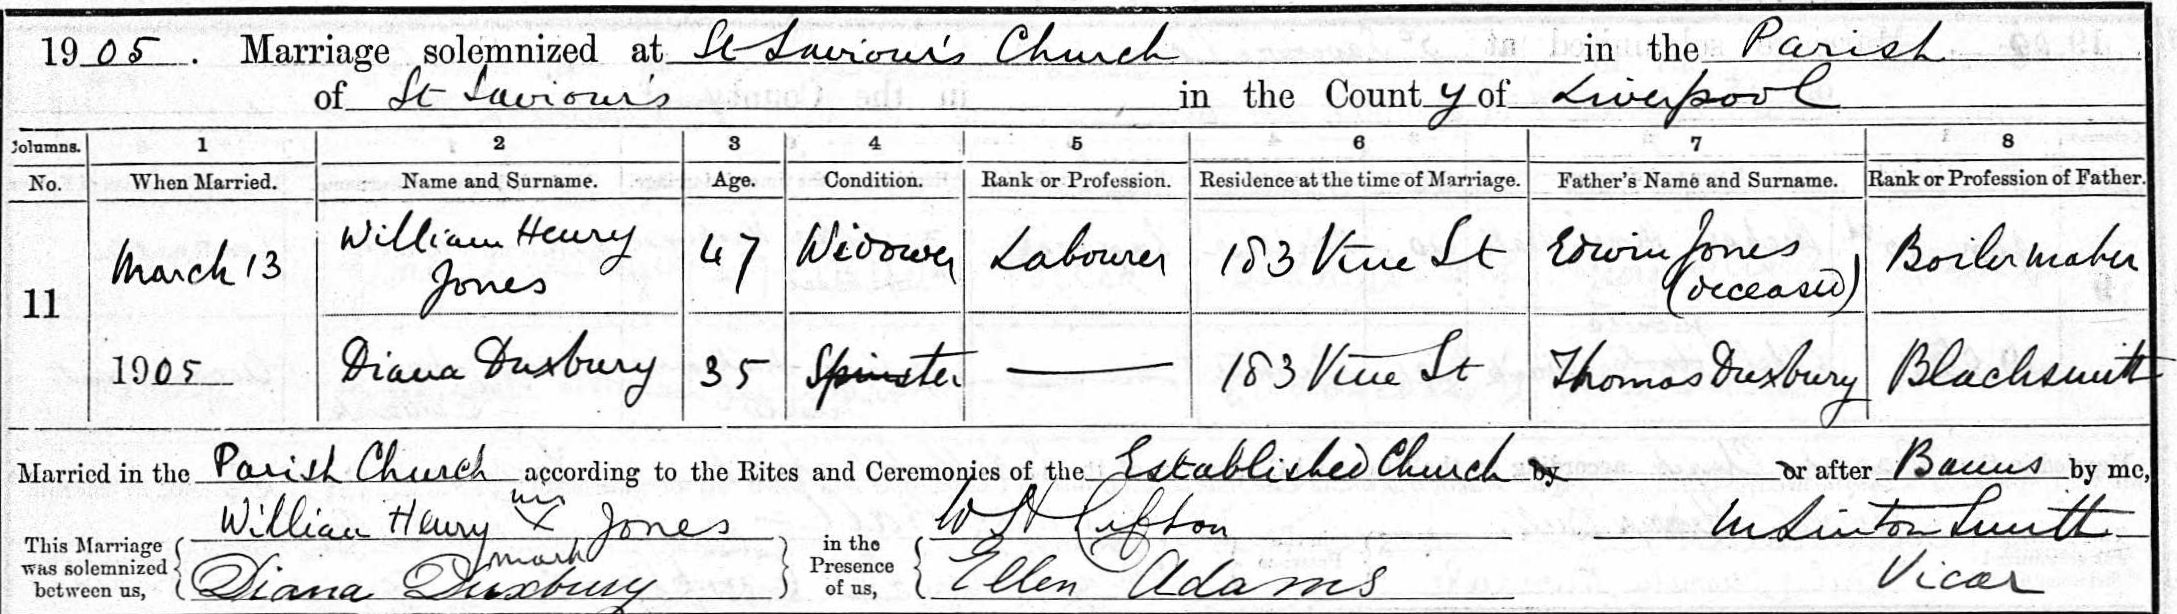 1905. Marriage solemnized at St Saviour's Church in the Parish
of St Saviour's in the County of Liverpool
Columns. 1 2 3 4 5 6 7 8
No. When Married. Name and Surname. Age. Condition. Rank or Profession. Residence at the time of Marriage. Father's Name and Surname. Rank or Profession of Father.
11 March 13 William Henry Jones 47 Widower Labourer 183 Vine St Edwin Jones (deceased) Boilermaker
1905 Diana Duxbury 35 Spinster — 183 Vine St Thomas Duxbury Blacksmith
Married in the Parish Church according to the Rites and Ceremonies of the Established Church by or after Banns by me,
This Marriage was solemnized between us, William Henry his X mark Jones in the Presence of us, W H Clifton M Linton Smith
Diana Duxbury Ellen Adams Vicar